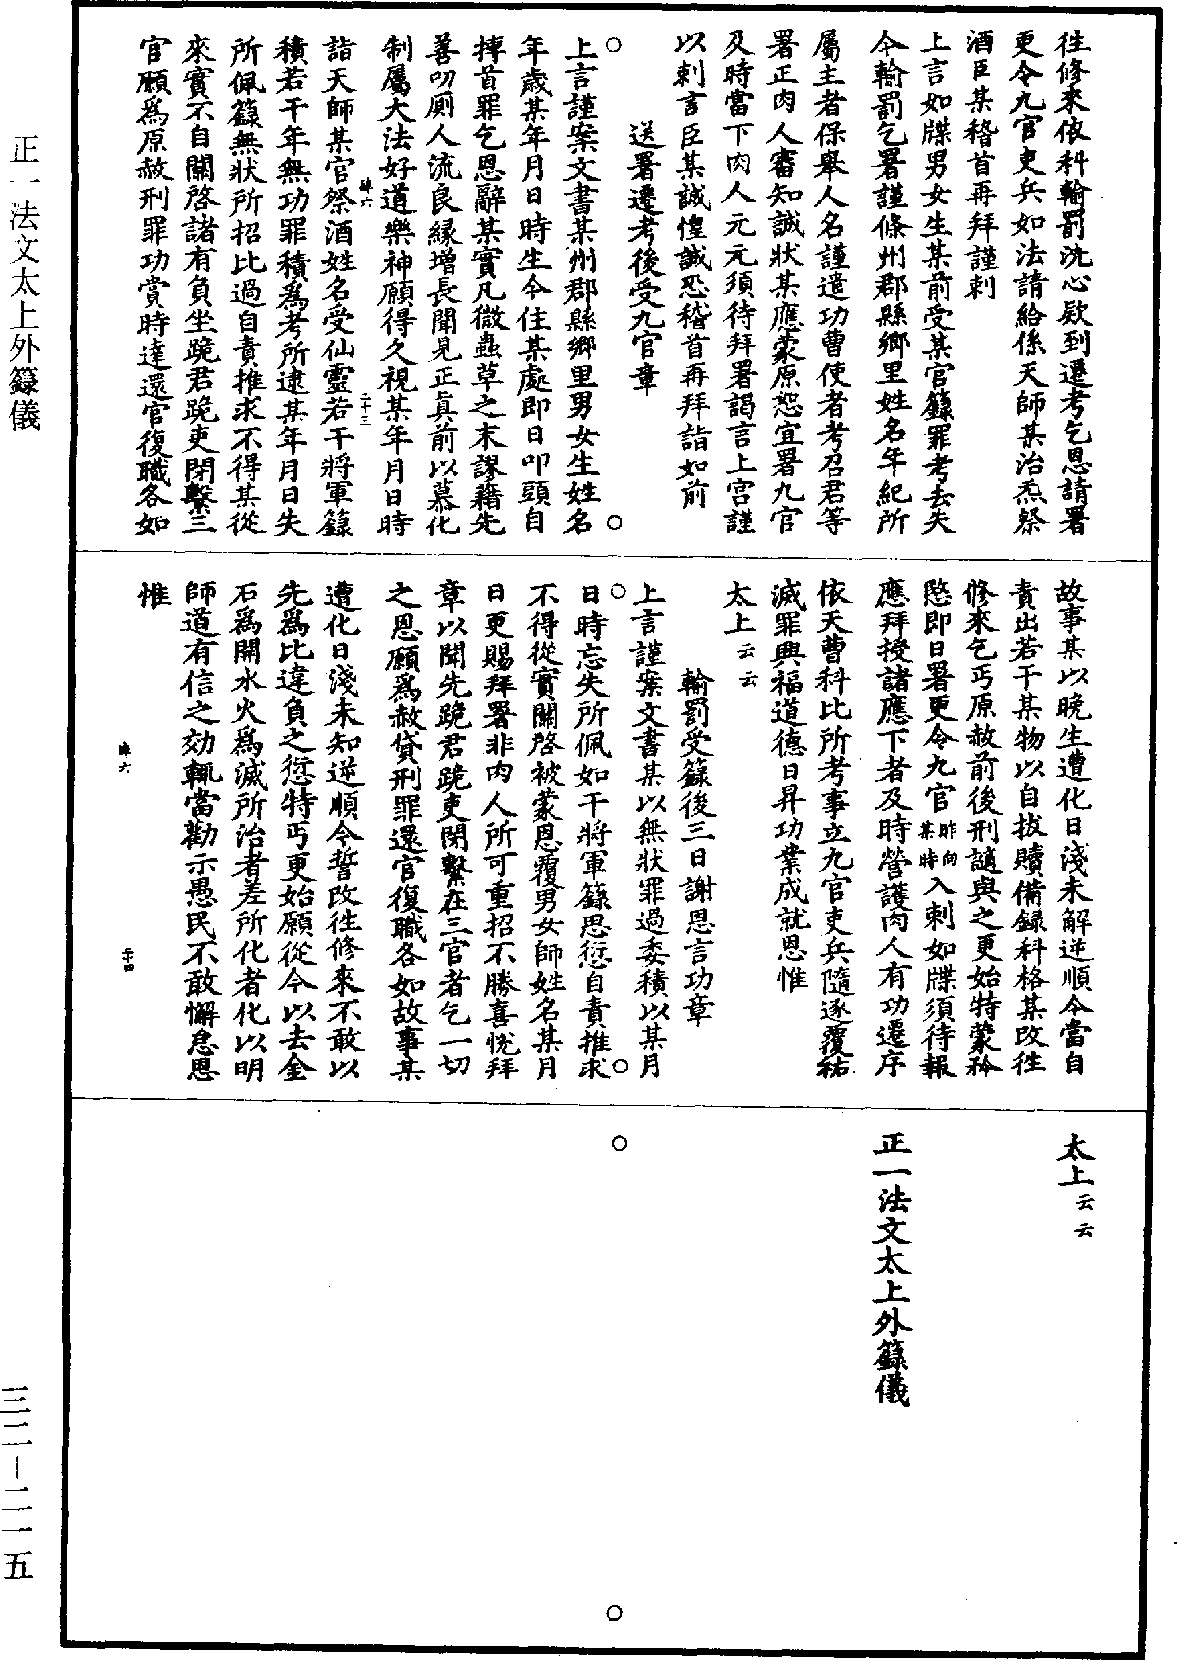 往修來依科輸罰沈心欵到遷考乞恩請署
更令九官吏兵如法請給係天師某治炁祭
酒臣某稽首再拜謹刺
上言如牒男女生某前受某官籙罪考去失
今輸罰乞署謹條州郡縣鄉里姓名年紀所
屬主者保舉人名謹遣功曹使者考召君等
署正肉人審知誠狀某應蒙原恕宜署九官
及時當下肉人元元須待拜署謁言上宮謹
以刺言臣某誠惶誠恐稽首再拜詣如前
送署遷考後受九官章
上言謹案文書某州郡縣鄉里男女生姓名
年歲某年月日時生今住某處即日叩頭自
搏首罪乞恩辭某實凡微蟲草之末謬藉先
善叨廁人流良緣增長聞見正真前以慕化
制屬大法好道樂神願得久視某年月日時
陣六
二十三
詣天師某官祭酒姓名受仙靈若干將軍籙
積若干年無功罪積為考所逮某年月日失
所佩籙無狀所招比過自責推求不得某從
來實不自關啓諸有負坐跪君跪吏閉繫三
官願為原赦刑罪功賞時達還官復職各如
故事某以晚生遭化日淺未解逆順今當自
責出若干某物以自拔贖備録科格某改往
修來乞丐原赦前後刑讁與之更始特蒙矜
愍即日署更令九官昨向某時入刺如牒須待報
應拜授諸應下者及時營護肉人有功遷序
依天曹科比所考事立九官吏兵隨逐覆祐
滅罪興福道德日昇功業成就恩惟
太上云云
輸罰受籙後三日謝恩言功章
上言謹案文書某以無狀罪過委積以某月
日時忘失所佩如干將軍籙思愆自責推求
不得從實關啓被蒙恩覆男女師姓名某月
日更賜拜署非肉人所可重招不勝喜悅拜
章以聞先跪君跪吏閉繫在三官者乞一切
之恩願為赦貸刑罪還官復職各如故事某
遭化日淺未知逆順今誓改往修來不敢以
先為比違負之愆特丐更始願從今以去金
石為開水火為滅所治者差所化者化以明
師道有信之効輒當勸示愚民不敢懈怠恩
陣六
二十四
惟
太上云云
正一法文太上外籙儀
正一法文太上外籙儀
三二—二一五